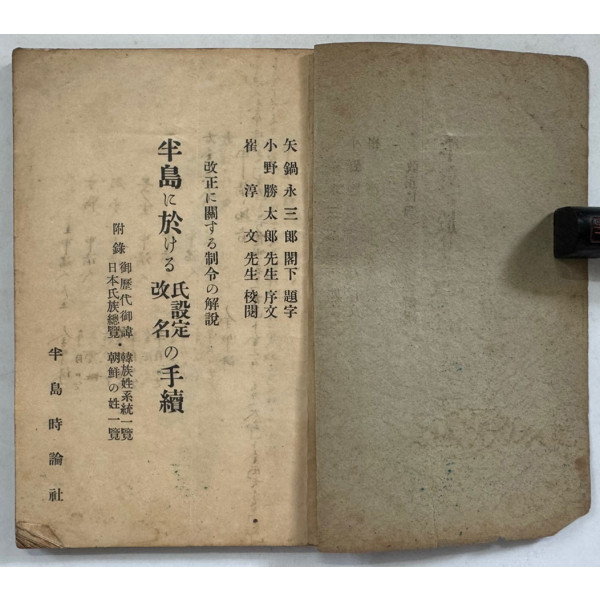 矢鍋永三郎閣下題字
小野勝太郎先生序文
崔淳文先生校閱
改正に關する制令の解説
半島に於ける氏設定改名の手續
附錄 御歷代御諱・韓族姓系統一覽
日本氏族總覽・朝鮮の姓一覽
半島時論社